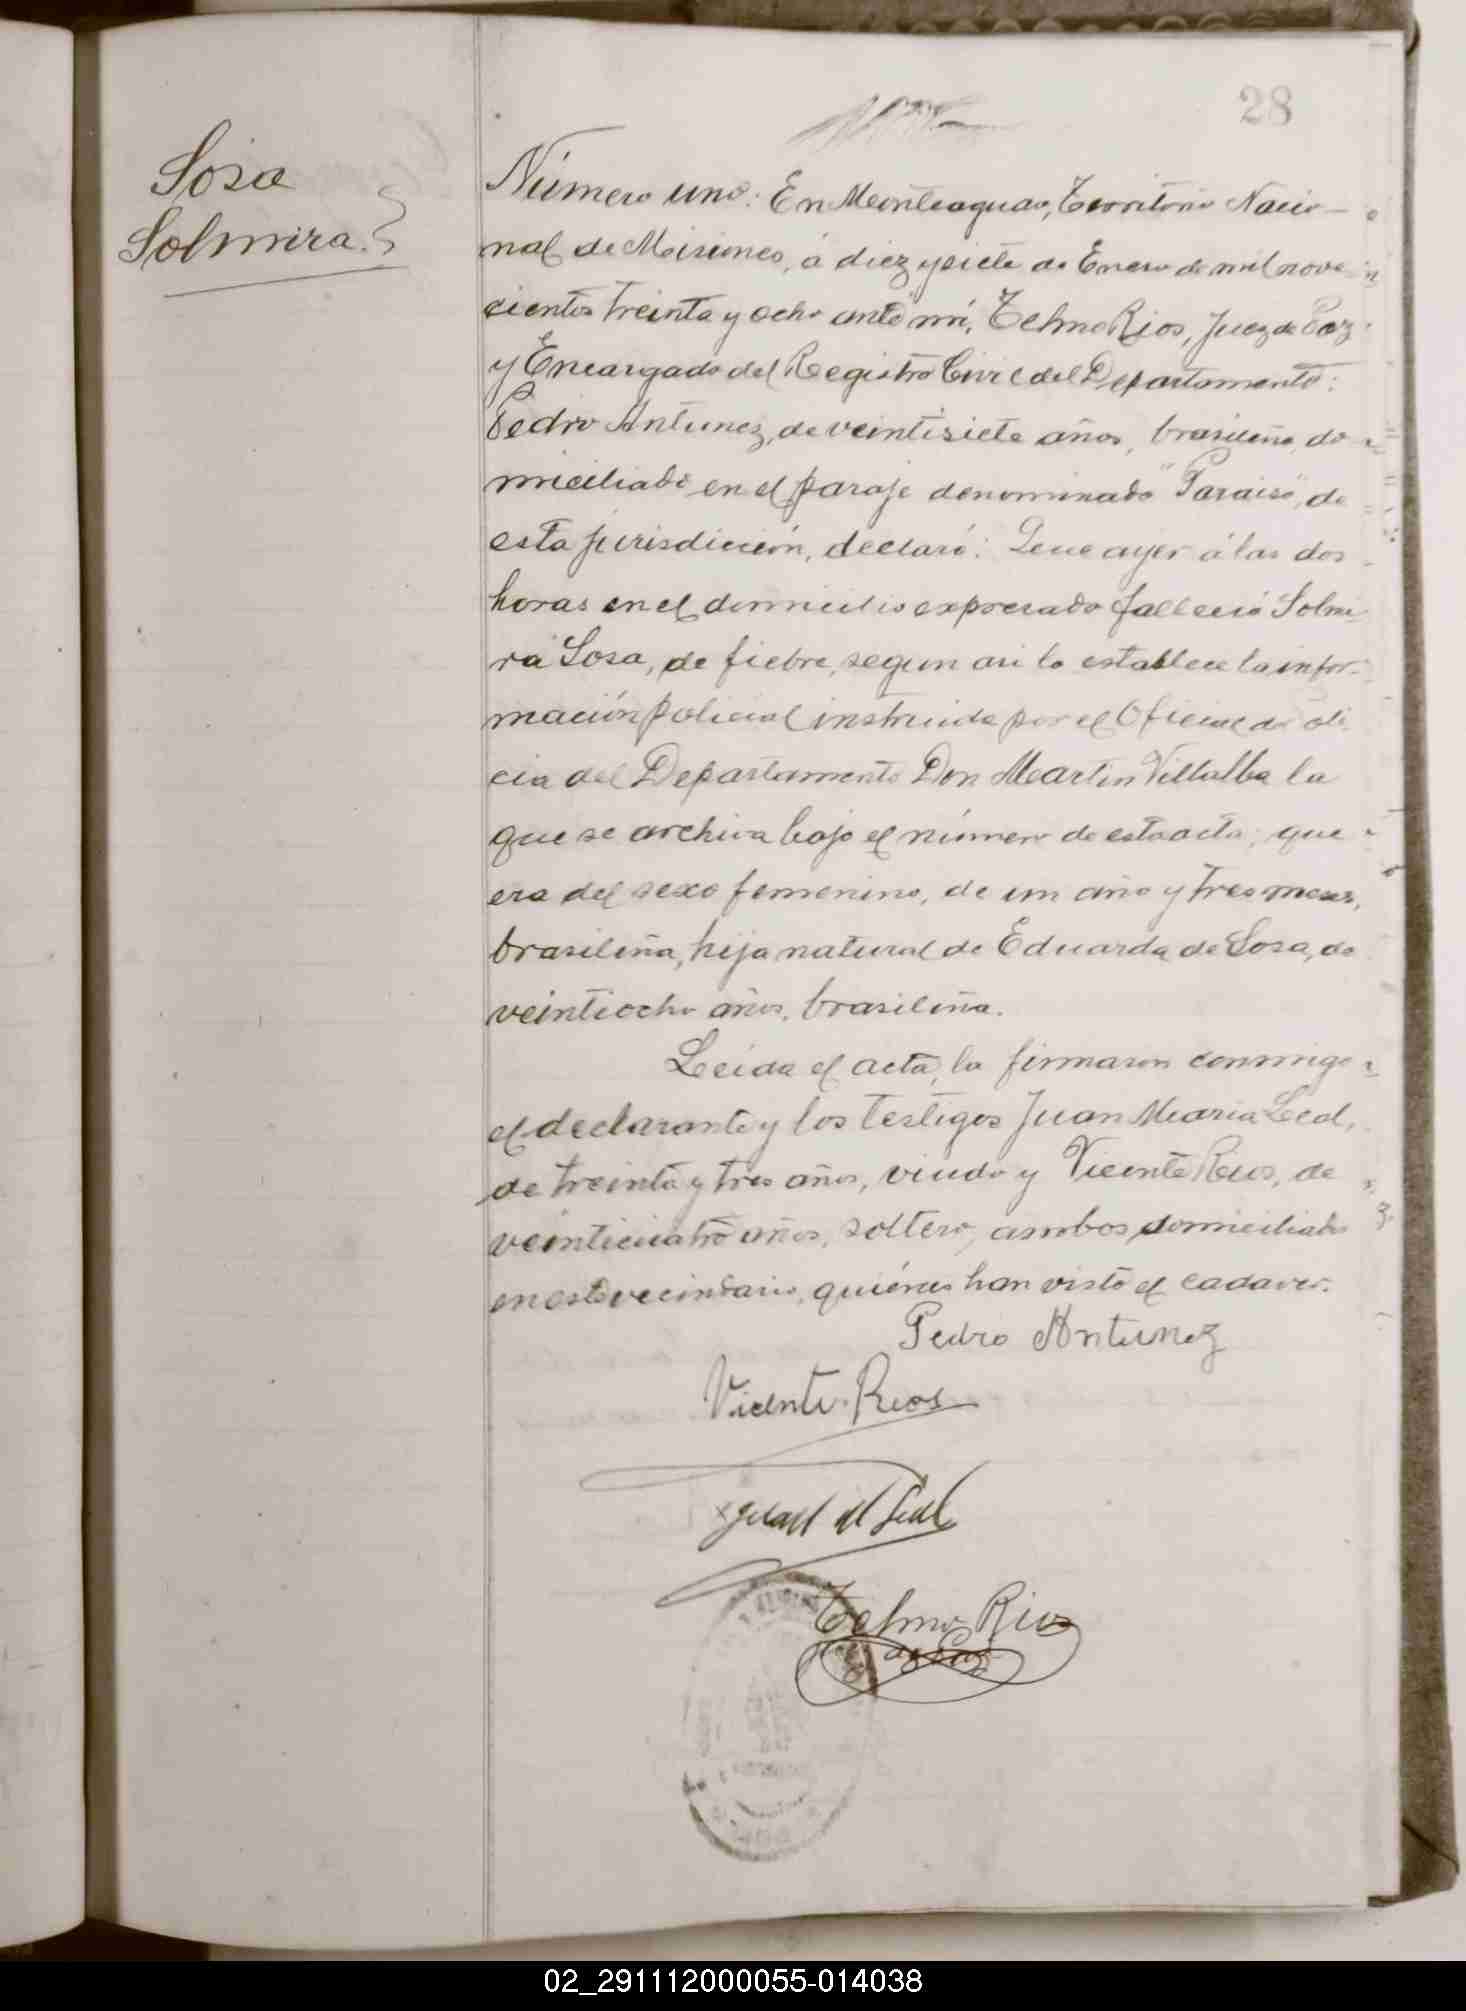 28
Sosa
Solmira.
Número uno: En Monteagudo, Territorio Nacio-
nal de Misiones, á diez y siete de Enero de mil nove
cientos treinta y ocho ante mí, Telmo Rios, Juez de Paz
y Encargado del Registro Civil del Departamento:
Pedro Antunez, de veintisiete años, brasileño, do-
miciliado en el paraje denominado "Paraiso", de
esta jurisdicción, declaró: Que ayer á las dos
horas en el domicilio expresado falleció Solmi
ra Sosa, de fiebre, segun asi lo establece la infor-
mación policial instruida por el Oficial de Poli
cia del Departamento Don Martin Villalba la
que se archiva bajo el número de esta acta; que
era del sexo femenino, de un año y tres meses,
brasileña, hija natural de Eduarda de Sosa, de
veintiocho años, brasileña.
Leida el acta, la firmaron conmigo
el declarante y los testigos Juan Maria Leal,
de treinta y tres años, viudo y Vicente Rios, de
veinticuatro años, soltero, ambos domiciliados
en este vecindario, quiénes han visto el cadaver.
Pedro Antunez
Vicente Rios
Juan M Leal
Telmo Rios
Juez de Paz
02_291112000055-014038